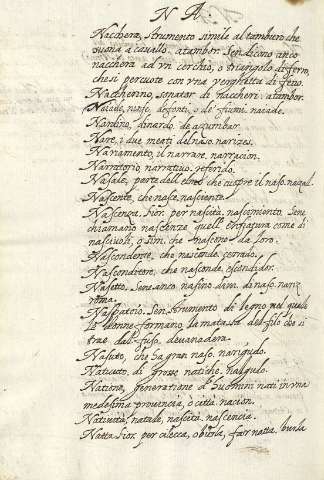 N A
Nacchera, strumento simile al tamburo che
suona a cavallo. atambor. Sendicono anco
nacchera ad vn cerchio, o triangolo di ferro,
che si percuote con vna verghetta di ferro.
Naccherino, sonator di naccheri. atambor.
Naiade, ninfe de fonti, o de fiumi. naiade.
Nardino, di nardo. de azumbar.
Nare, i due meati del naso. narizes.
Narramento, il narrare. narracion.
Narratorio, narrativo. referido.
Nasale, parte dell' elmo che cuopre il naso. nazal.
Nascente, che nasce. nasciente.
Nascenza. Sior. per nascita. nascimiento. Sene
chiamano nascenze quell' enfiature come di
nasciuoli, o sim. che nascono da loro.
Nascondente, che nasconde. cerrado.
Nasconditore, che nasconde. escondidor.
Nasetto, Sene anco nasino dim. di naso. nariz
roma.
Naspatoio. Sen. strumento di legno nel quale
le donne formano la matassa del filo che si
trae dal fuso. devanadera.
Nasuto, che ha gran naso. narigudo.
Naticuto, di grosse natiche. nalgudo.
Natione, generatione d' huomini nati in vna
medesima provincia, o città. nacion.
Natività, natale, nascita. nascencia.
Natta Sior. per cilecca, o burla, far natta. burla